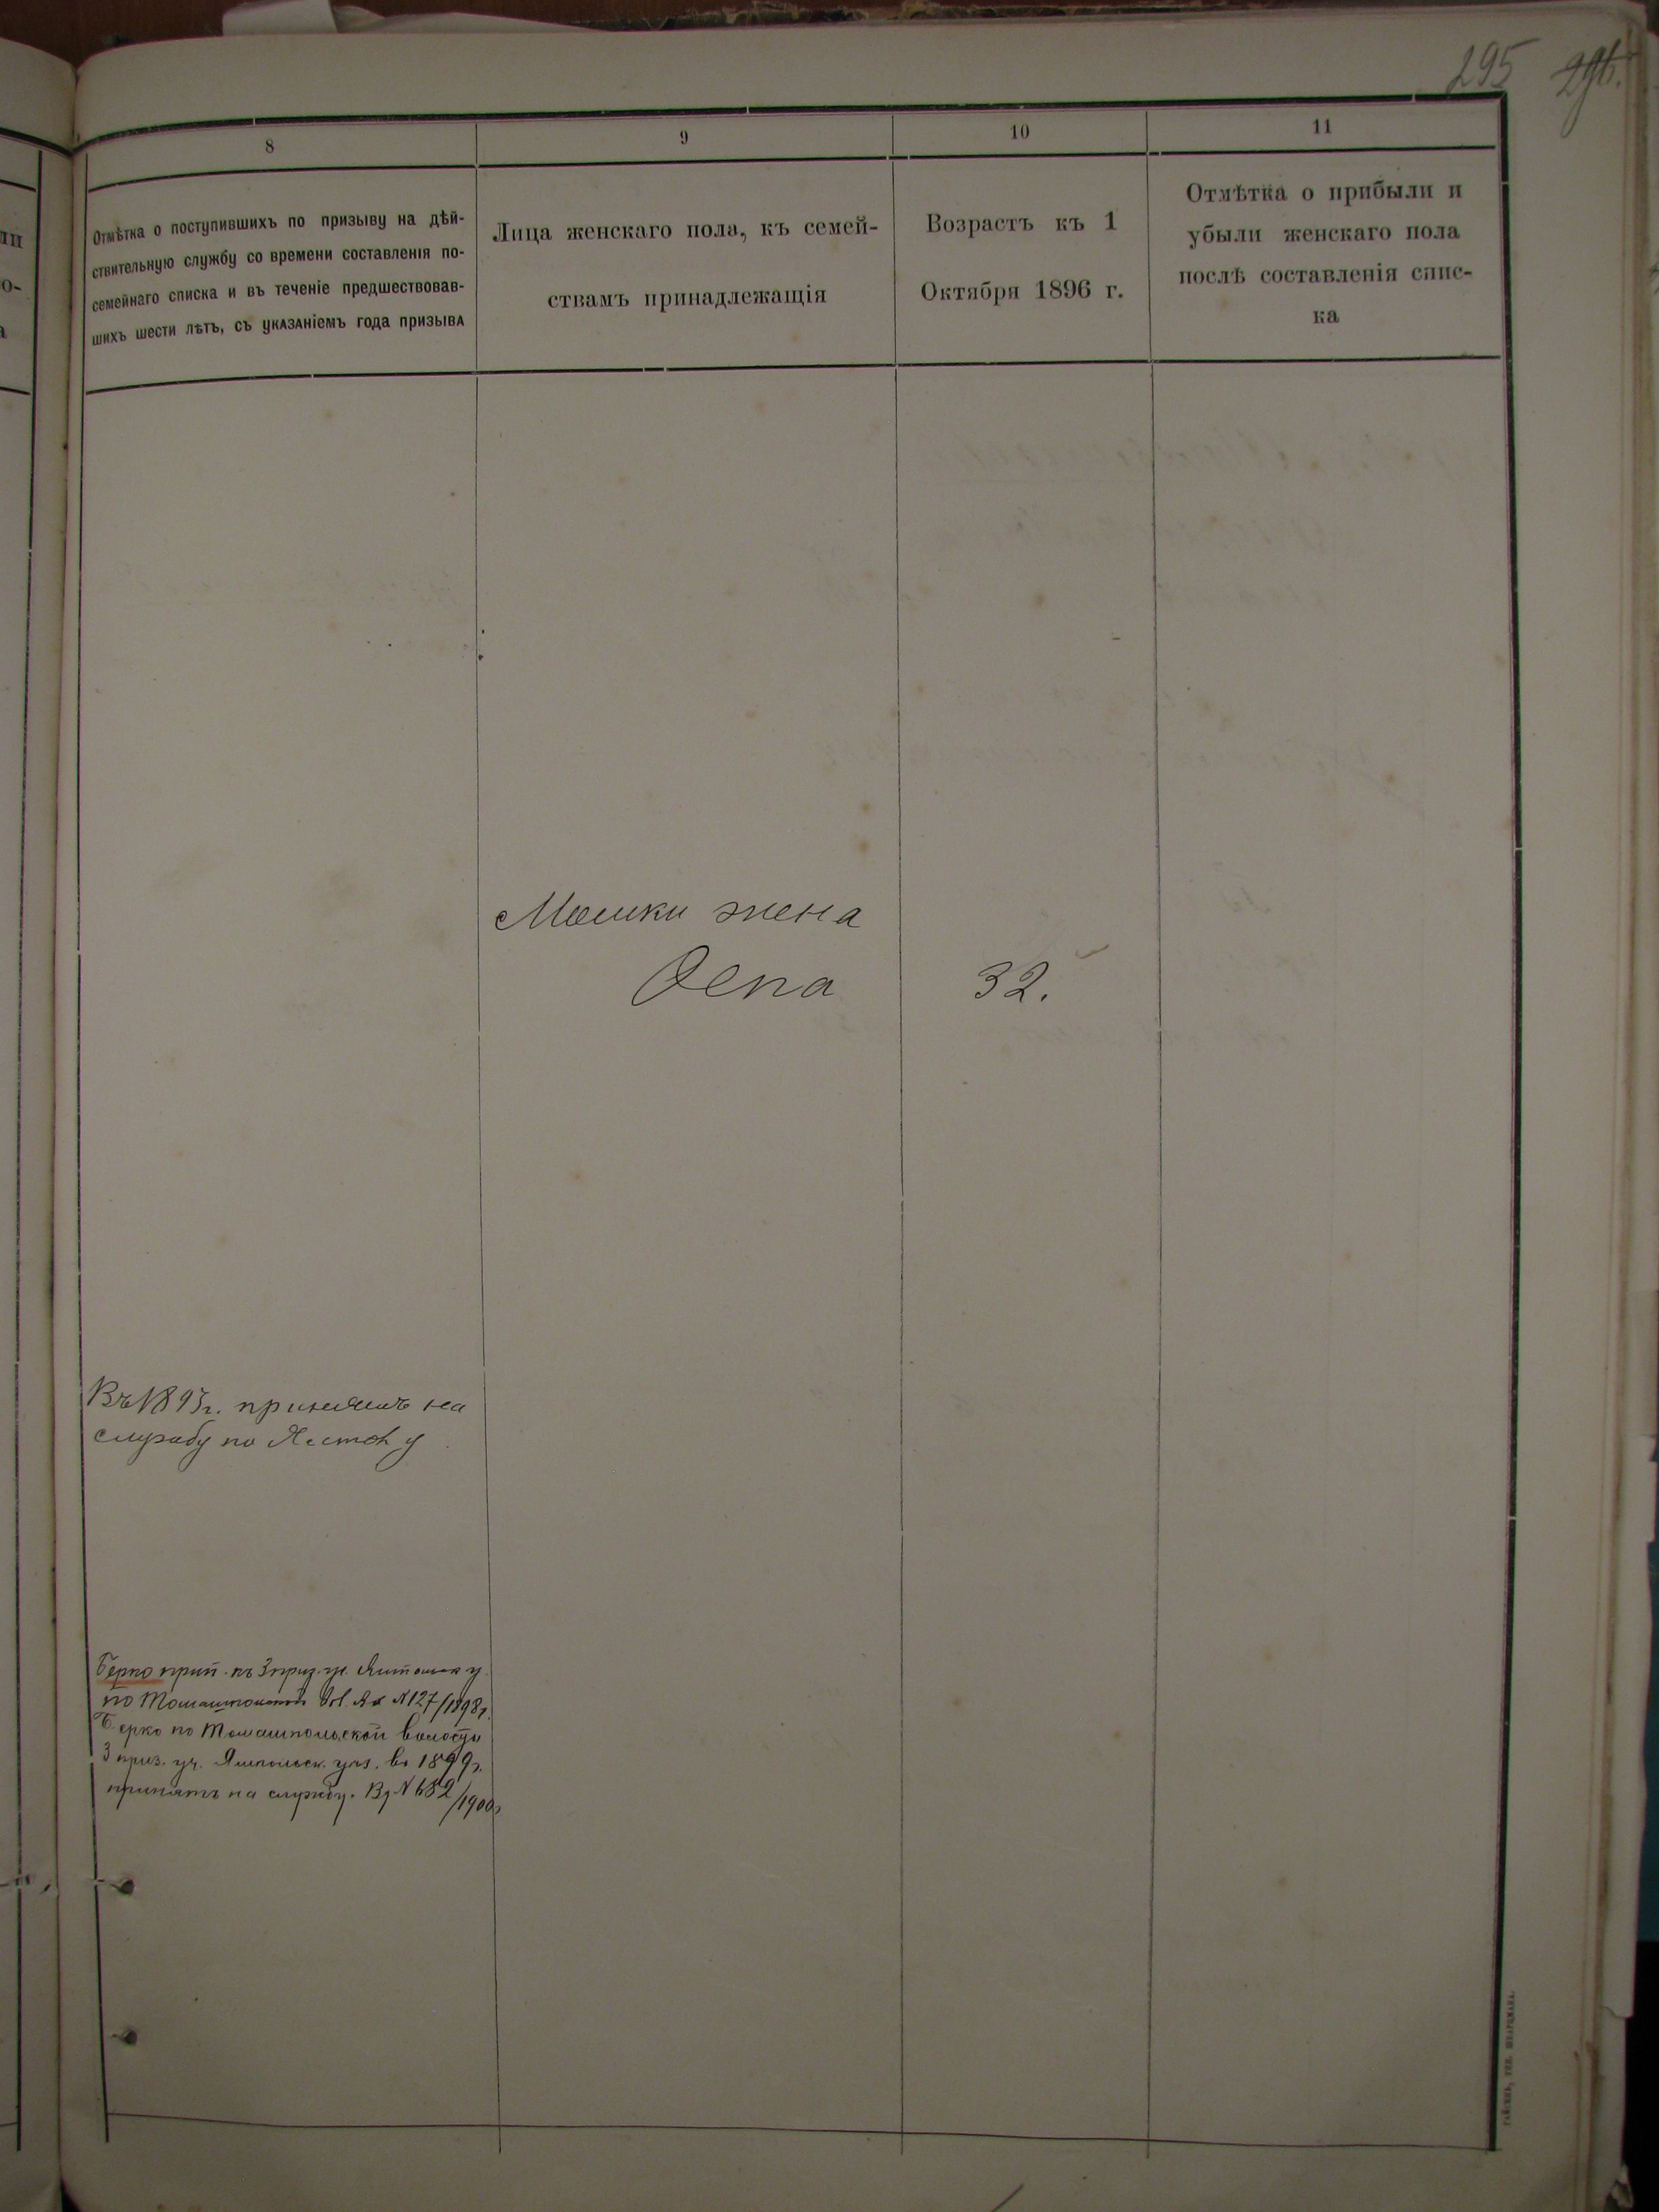 295 296.
8
9
10
11
Отмѣтка о поступившихъ по призыву на дѣй-
ствительную службу со времени составленія по-
семейнаго списка и въ теченіе предшествовав-
шихъ шести лѣтъ, съ указаніемъ года призыва
Лица женскаго пола, къ семей-
ствамъ принадлежащія
Возрастъ къ 1
Октября 1896 г.
Отмѣтка о прибыли и
убыли женскаго пола
послѣ составленія спис-
ка
Мошки жена
32.
Въ 189 г. принятъ на
службу по
Берко прип. къ 3 приз. уч.
по № 127/1898 г.
Берко по Томашпольской волости
3 приз. уч. Ямпольск. уѣз. въ 1899 г.
принятъ на службу. № 682/1900 г.